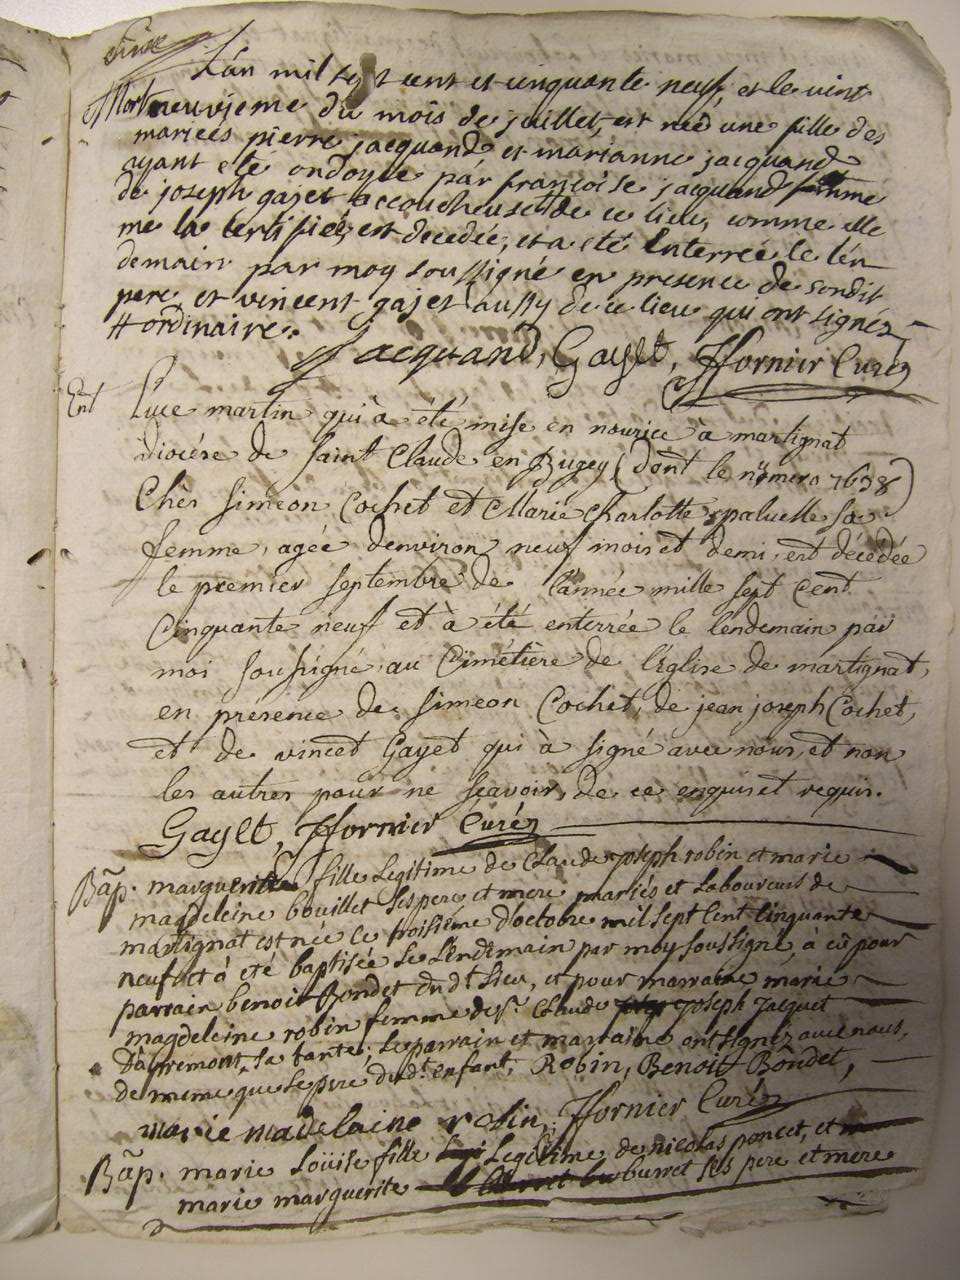 L'an mil sept cent et cinquante neuf, et le vint
Mort neuvieme du mois de juillet, est neé une fille des
mariées pierre jacquand et marianne jacquand
ayant eté ondoyée par françoise jacquand femme
de joseph gajet accoucheuse de ce lieu, comme elle
me la certifiéé, est decedée, et a eté Enterreé le lén
demain par moy soussigné en presence de sondit
pere et vincent gajet aussy de ce lieu qui ont signéz
#ordinaire.
Jacquand, Gayet, ffornier Curéz
Ent Luce martin qui à été mise en nourice à martignat
diocése de saint Claude en Bugey (dont le nümero 7638)
Chés Simeon Cochet et Marie Charlotte paluelle sa
femme, ageé denviron neuf mois et demi, est décedée
le premier septembre de l'année mille sept Cent
Cinquante neuf et à été enterrée le lendemain par
moi soussigné, au Cimétiere de l'église de martignat,
en presence de simeon Cochet, de jean joseph Cochet,
et de vincet Gayet qui à signé avec nous, et non
les autres pour né sçavoir, de ce enquis et requis.
Gayet, ffornier Curéz
Bap. marguerite fille Legitime de Claude joseph robin et marie
magdeleine bouillet ses pere et mere mariés et Laboureurs de
martignat est née le troisieme d'octobre mil sept Cent Cinquante
neuf et à été baptisée Le Léndemain par moy soussigné, à eü pour
parrain benoit Bondet du dt Lieu, et pour marraine marie
magdeleine robin femme de sr. Claude Joseph Jacquet
D'apremont, sa tante; Le parrain et marraine ont signéz avec nous,
de meme que Le pere du dt. enfant, Robin, Benoit Bondet,
marie madelaine robin, ffornier Curéz
Bap. marie Loüise fille Legitime de nicolas poncet, et
marie marguerite burret ses pere et mere